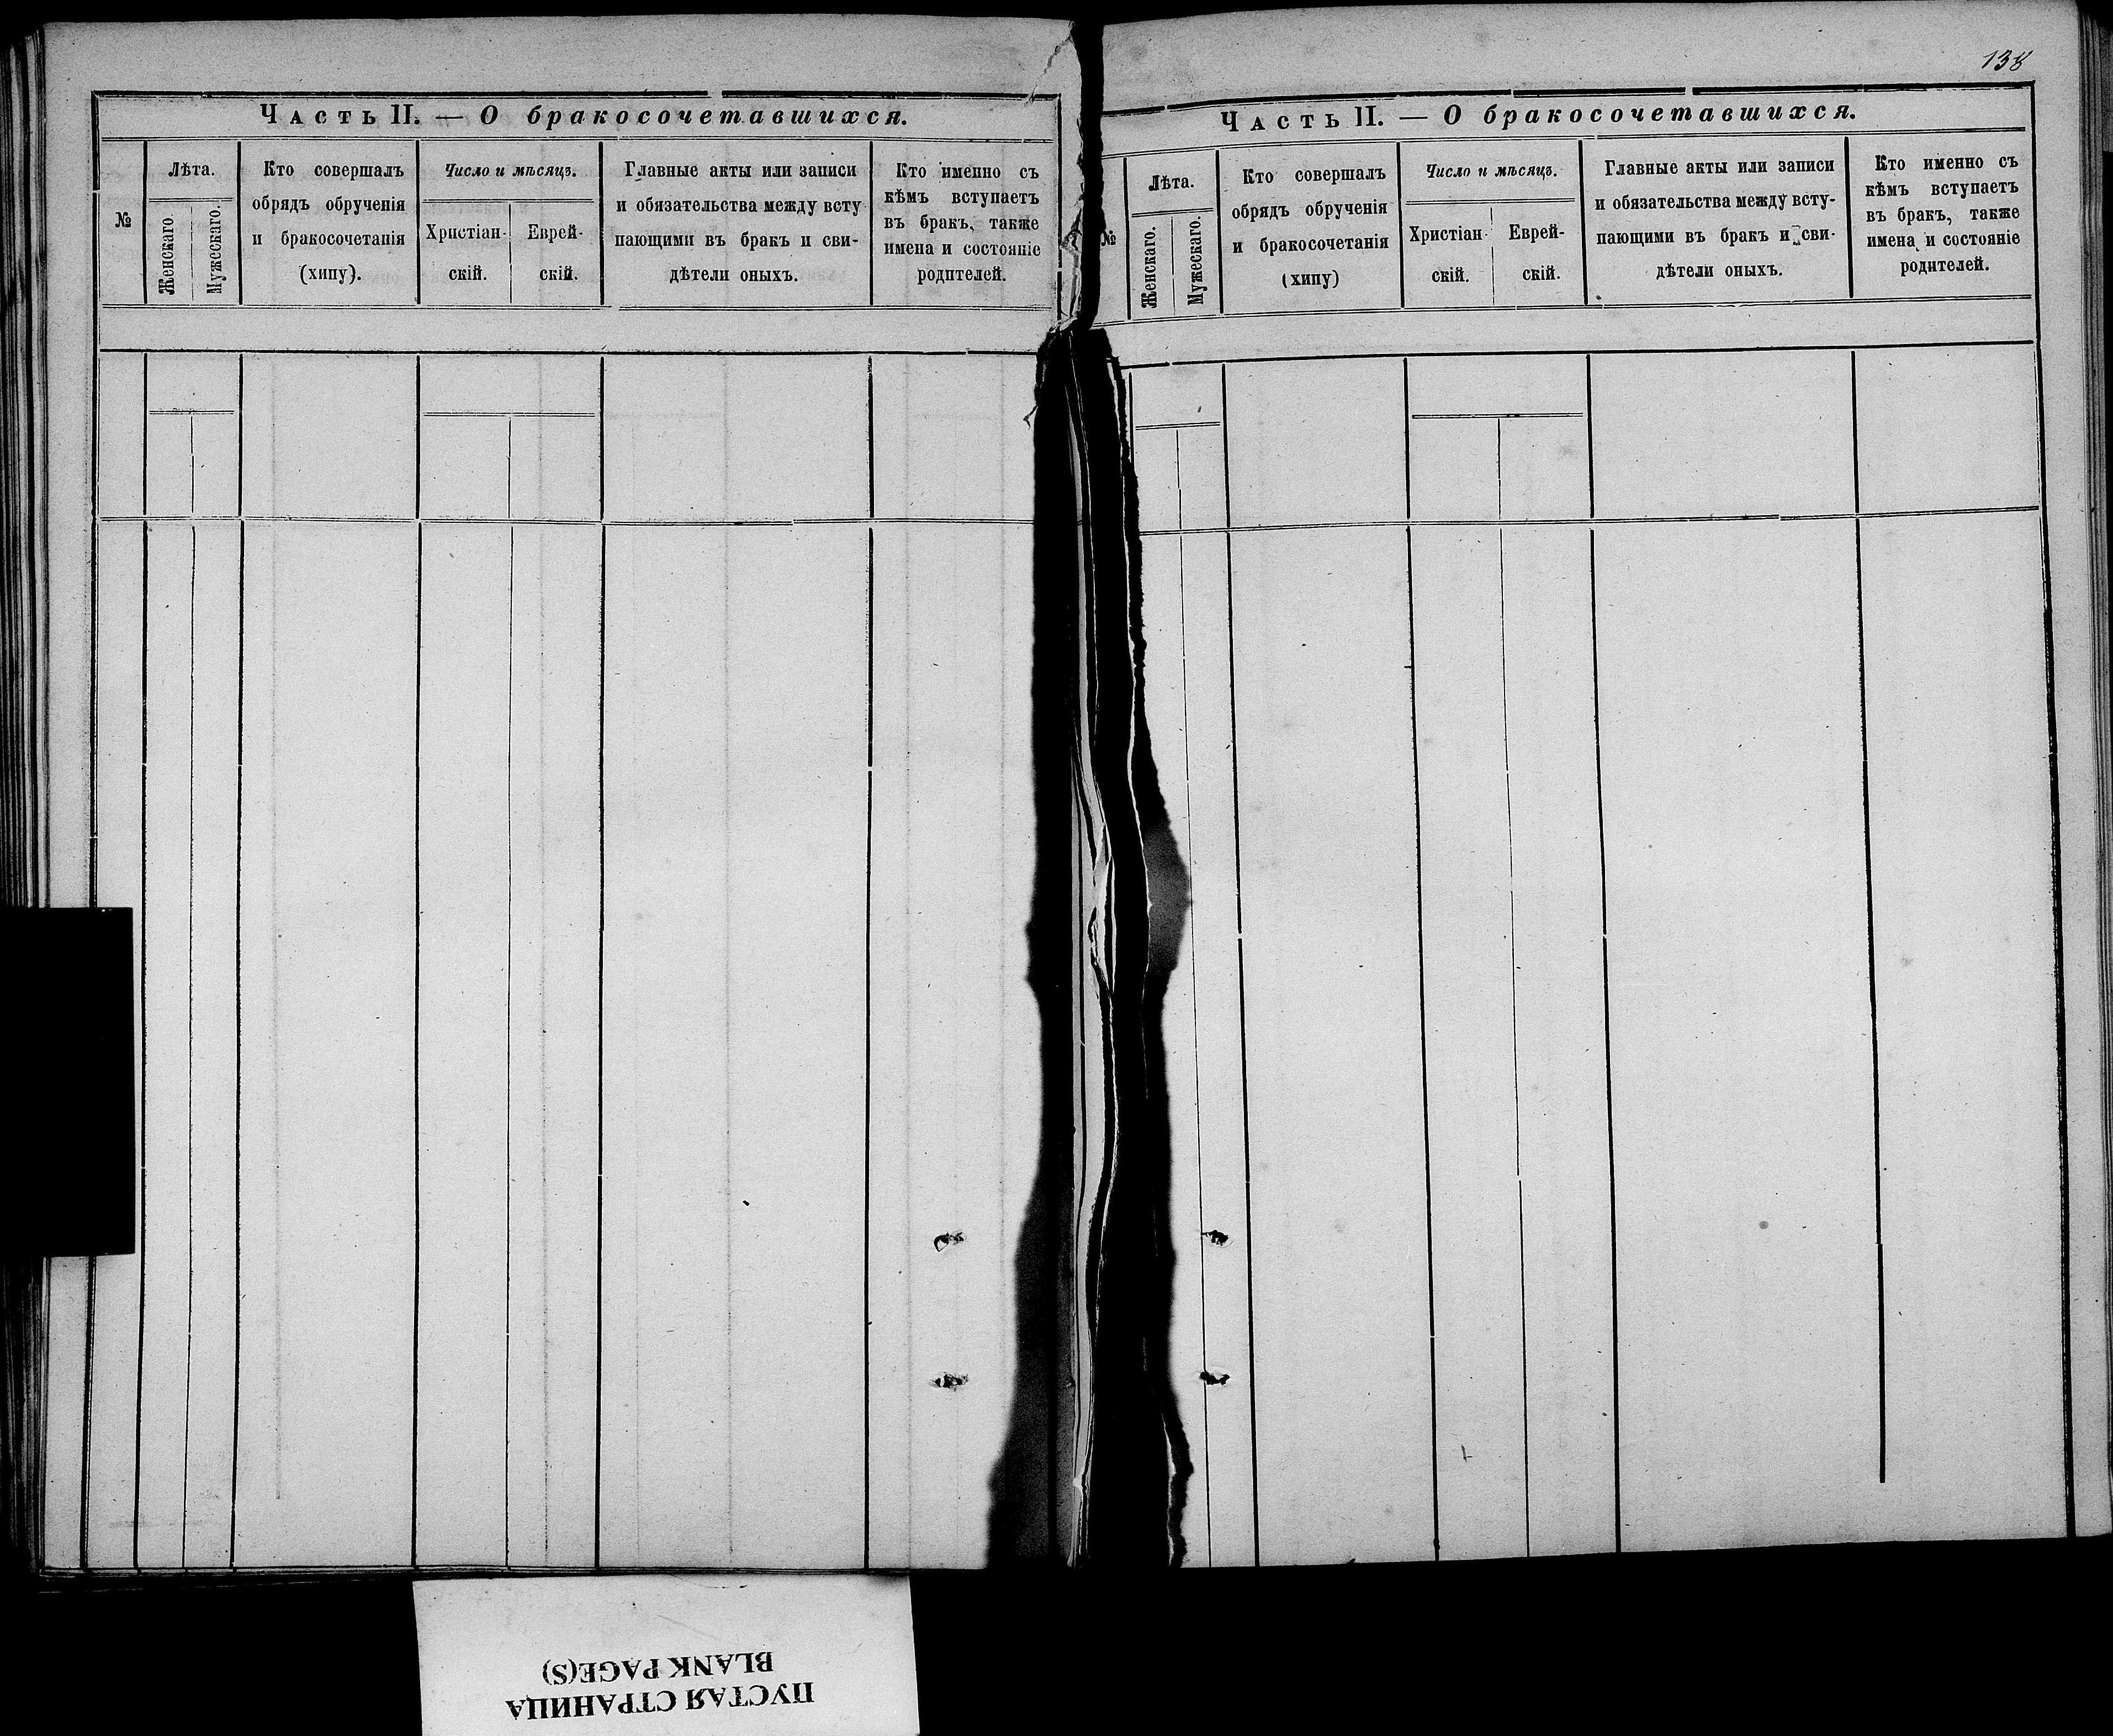 138
Часть II. — О бракосочетавшихся.
№
Лѣта.
Женскаго
Мужескаго.
Кто совершалъ
обрядъ обрученія
и бракосочетанія
(хипу).
Число и мѣсяцъ.
Христіан-
скій.
Еврей-
скій.
Главные акты или записи
и обязательства между всту
пающими въ бракъ и сви-
дѣтели оныхъ.
Кто именно съ
кѣмъ вступаетъ
въ бракъ, также
имена и состояніе
родителей.
Часть II. — О бракосочетавшихся.
№
Лѣта.
Женскаго.
Мужескаго.
Кто совершалъ
обрядъ обрученія
и бракосочетанія
(хипу)
Число и мѣсяцъ.
Христіан-
скій.
Еврей-
скій.
Главные акты или записи
и обязательства между всту-
пающими въ бракъ и сви-
дѣтели оныхъ.
Кто именно съ
кѣмъ вступаетъ
въ бракъ, также
имена и состояніе
родителей.
ПУСТАЯ СТРАНИЦА
BLANK PAGE(S)